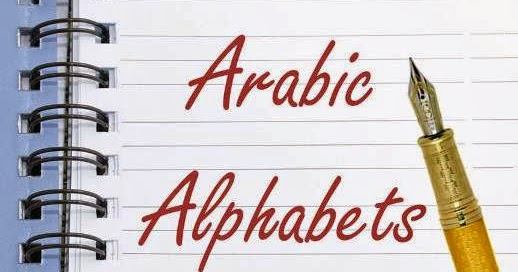 Arabic
Alphabets